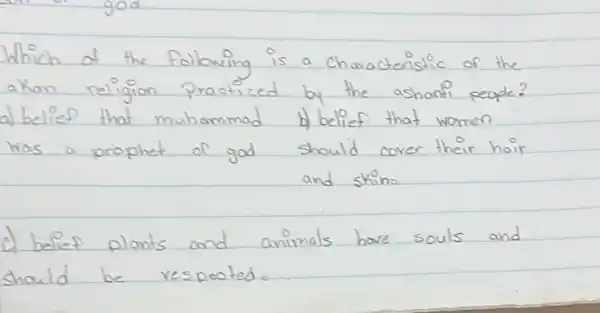 god
Which of the following is a characteristic of the
akan religion practiced by the ashanti people?
a) belief that muhammad b) belief that women
was a prophet of god should cover their hair
and skin.
c) belief plants and animals have souls and
should be respected.